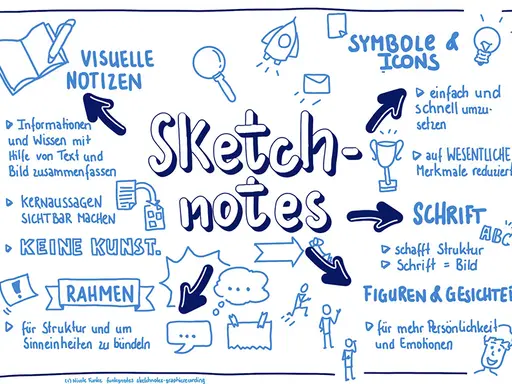 VISUELLE
NOTIZEN
Informationen
und Wissen mit
Hilfe von Text und
Bild zusammenfassen
KERNAUSSAGEN
SICHTBAR MACHEN
KEINE KUNST.
Sketch-
notes
SYMBOLE &
ICONS
einfach und
schnell umzu-
setzen
auf WESENTLICHE
Merkmale reduziert
SCHRIFT
ABC
schafft Struktur
Schrift = Bild
!
RAHMEN
für Struktur und um
Sinneinheiten zu bündeln
FIGUREN & GESICHTE
für mehr Persönlichkeit
und Emotionen
(c) Nicole Funke